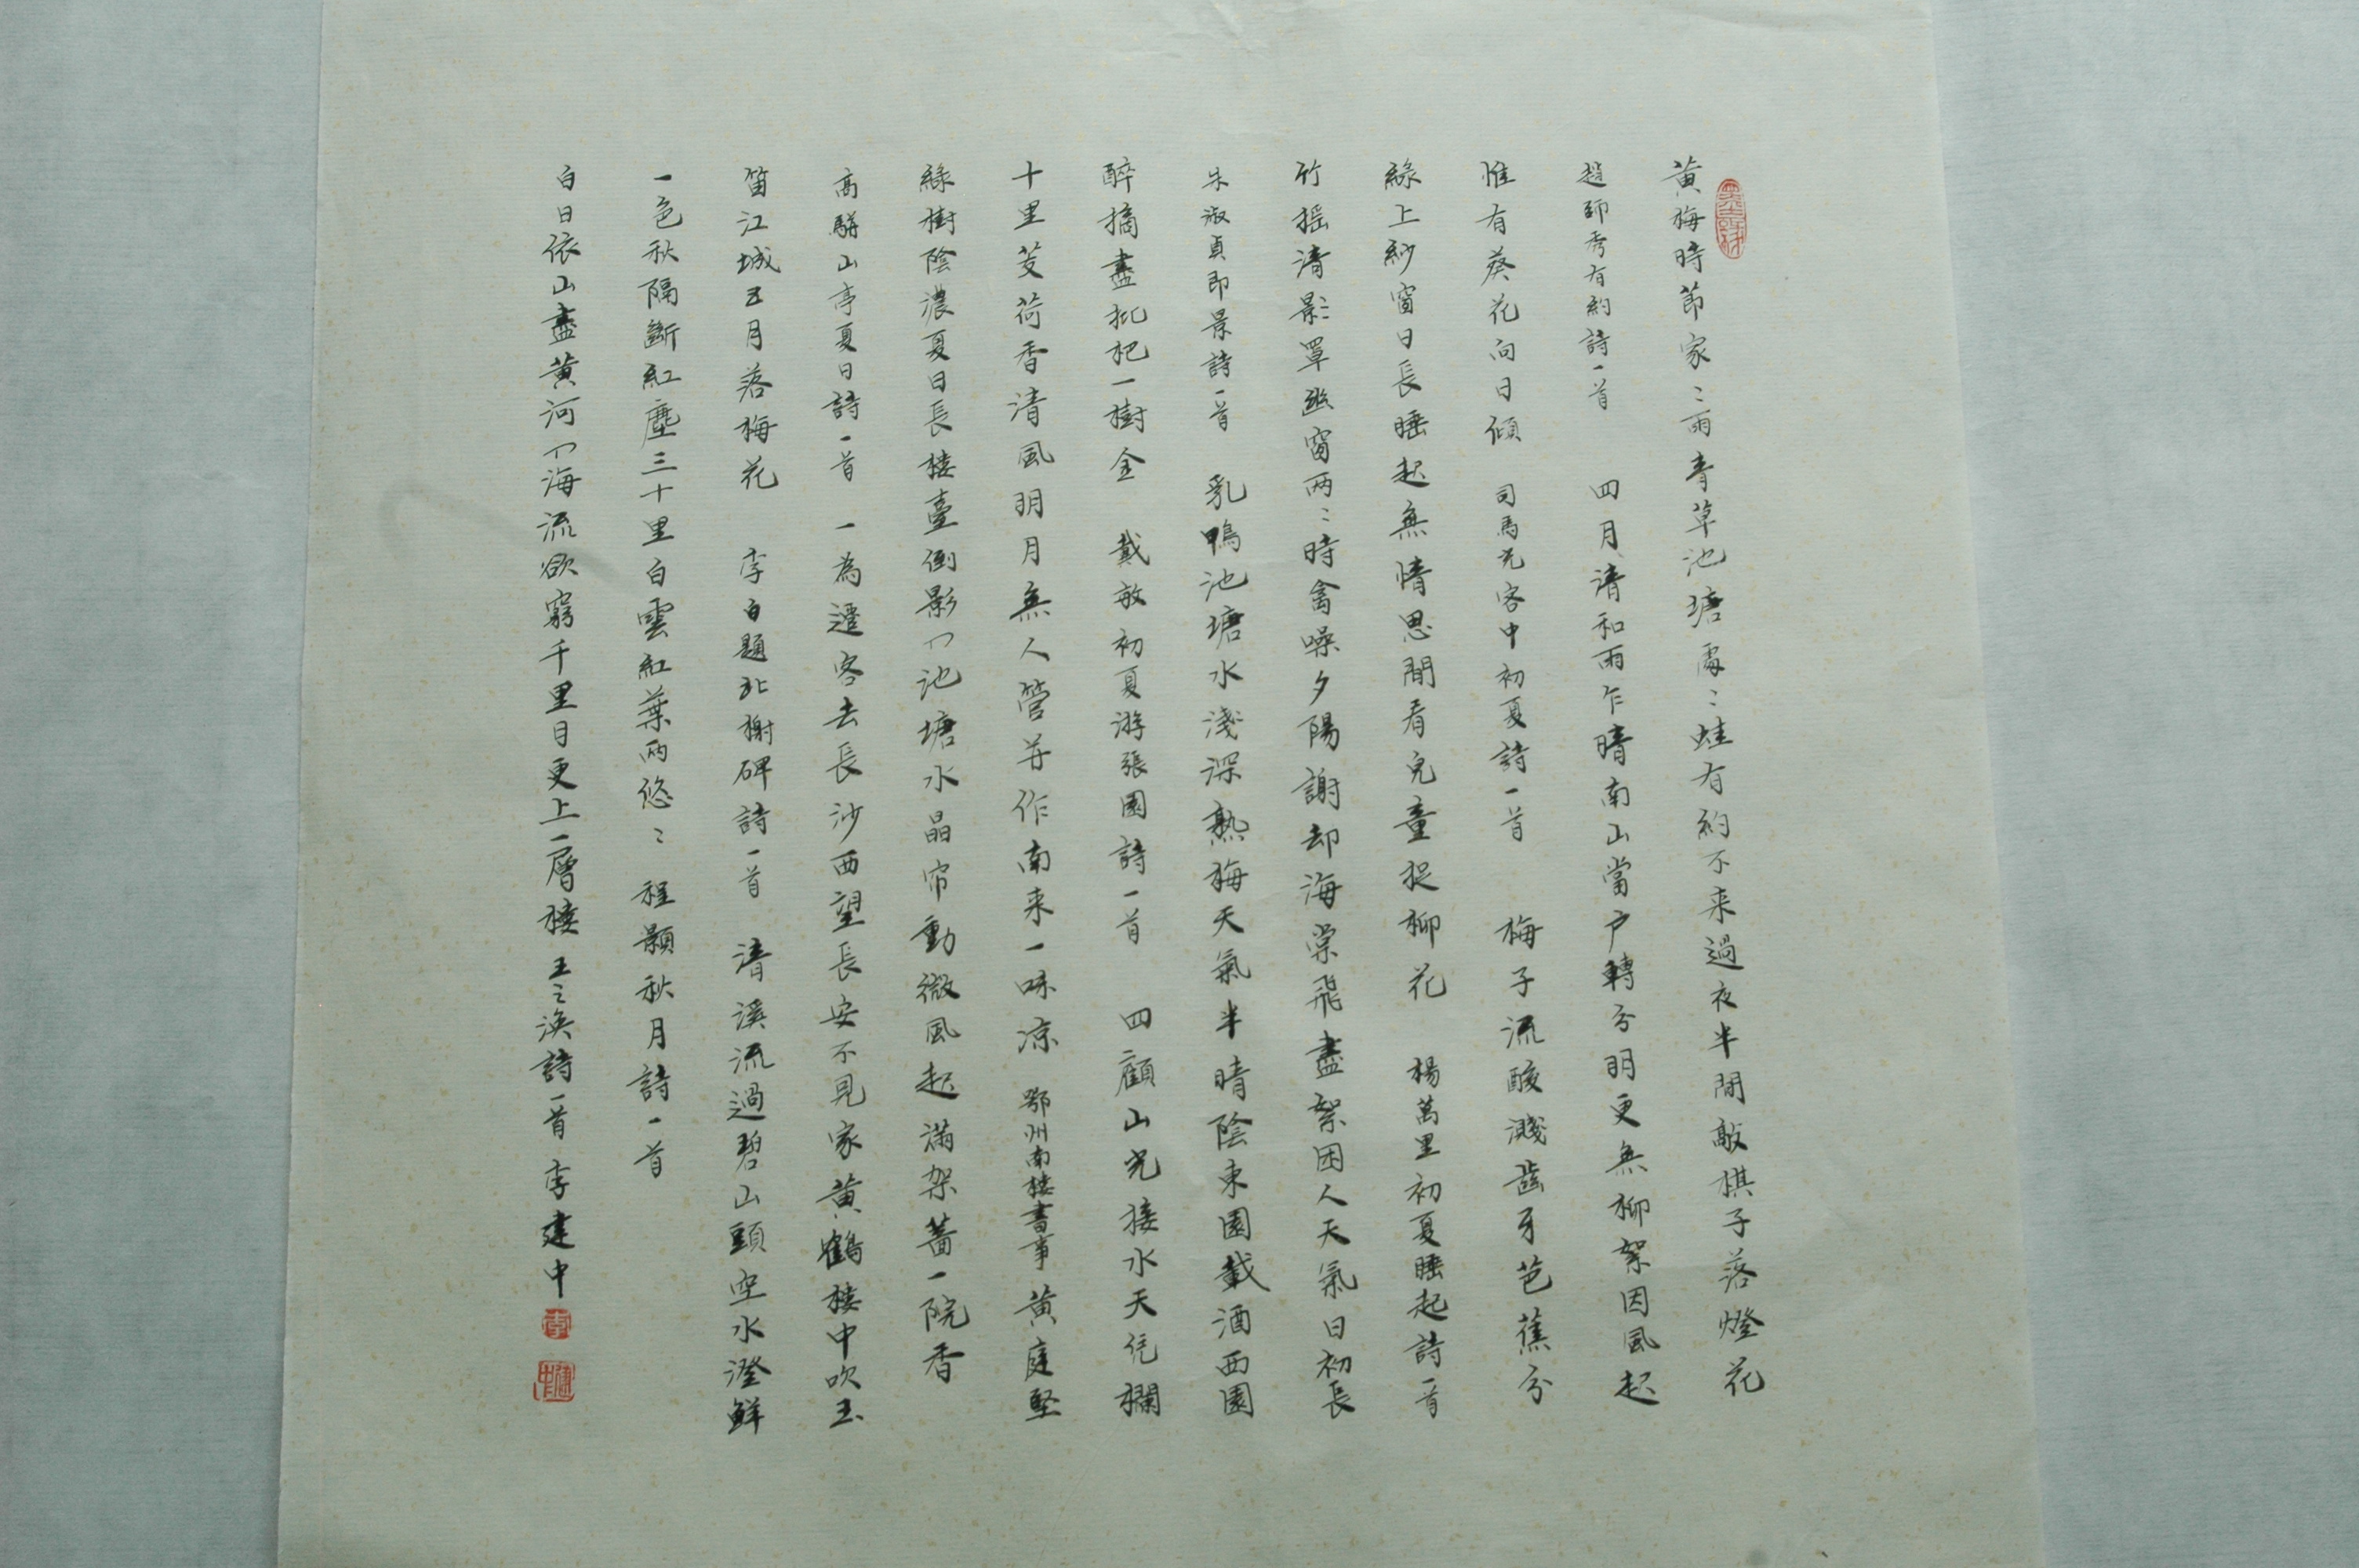 黄梅時節家〻雨青草池塘處〻蛙有約不来過夜半閒敲棋子落燈花
趙師秀有約詩一首 四月清和雨乍晴南山當户轉分明更無柳絮因風起
惟有葵花向日傾 司馬光客中初夏詩一首 梅子流酸濺齒牙芭蕉分
綠上紗窗日長睡起無情思閒看兒童捉柳花 楊萬里初夏睡起詩一首
竹摇清影罩幽窗两〻時禽噪夕陽謝却海棠飛盡絮困人天氣日初長
朱淑貞即景詩一首 乳鴨池塘水淺深熟梅天氣半晴陰東園載酒西園
醉摘盡枇杷一樹金 戴敏初夏游張園詩一首 四顧山光接水天凭欄
十里芰荷香清風明月無人管并作南来一味凉 鄂州南楼書事黄庭堅
綠樹陰濃夏日長楼臺倒影入池塘水晶帘動微風起滿架薔一院香
高駢山亭夏日詩一首 一為遷客去長沙西望長安不見家黄鶴楼中吹玉
笛江城五月落梅花 李白題北榭碑詩一首 清溪流過碧山頭空水澄鮮
一色秋隔斷紅塵三十里白雲紅葉两悠〻 程顥秋月詩一首
白日依山盡黄河入海流欲窮千里目更上一層楼 王之渙詩一首 李建中
李
建中